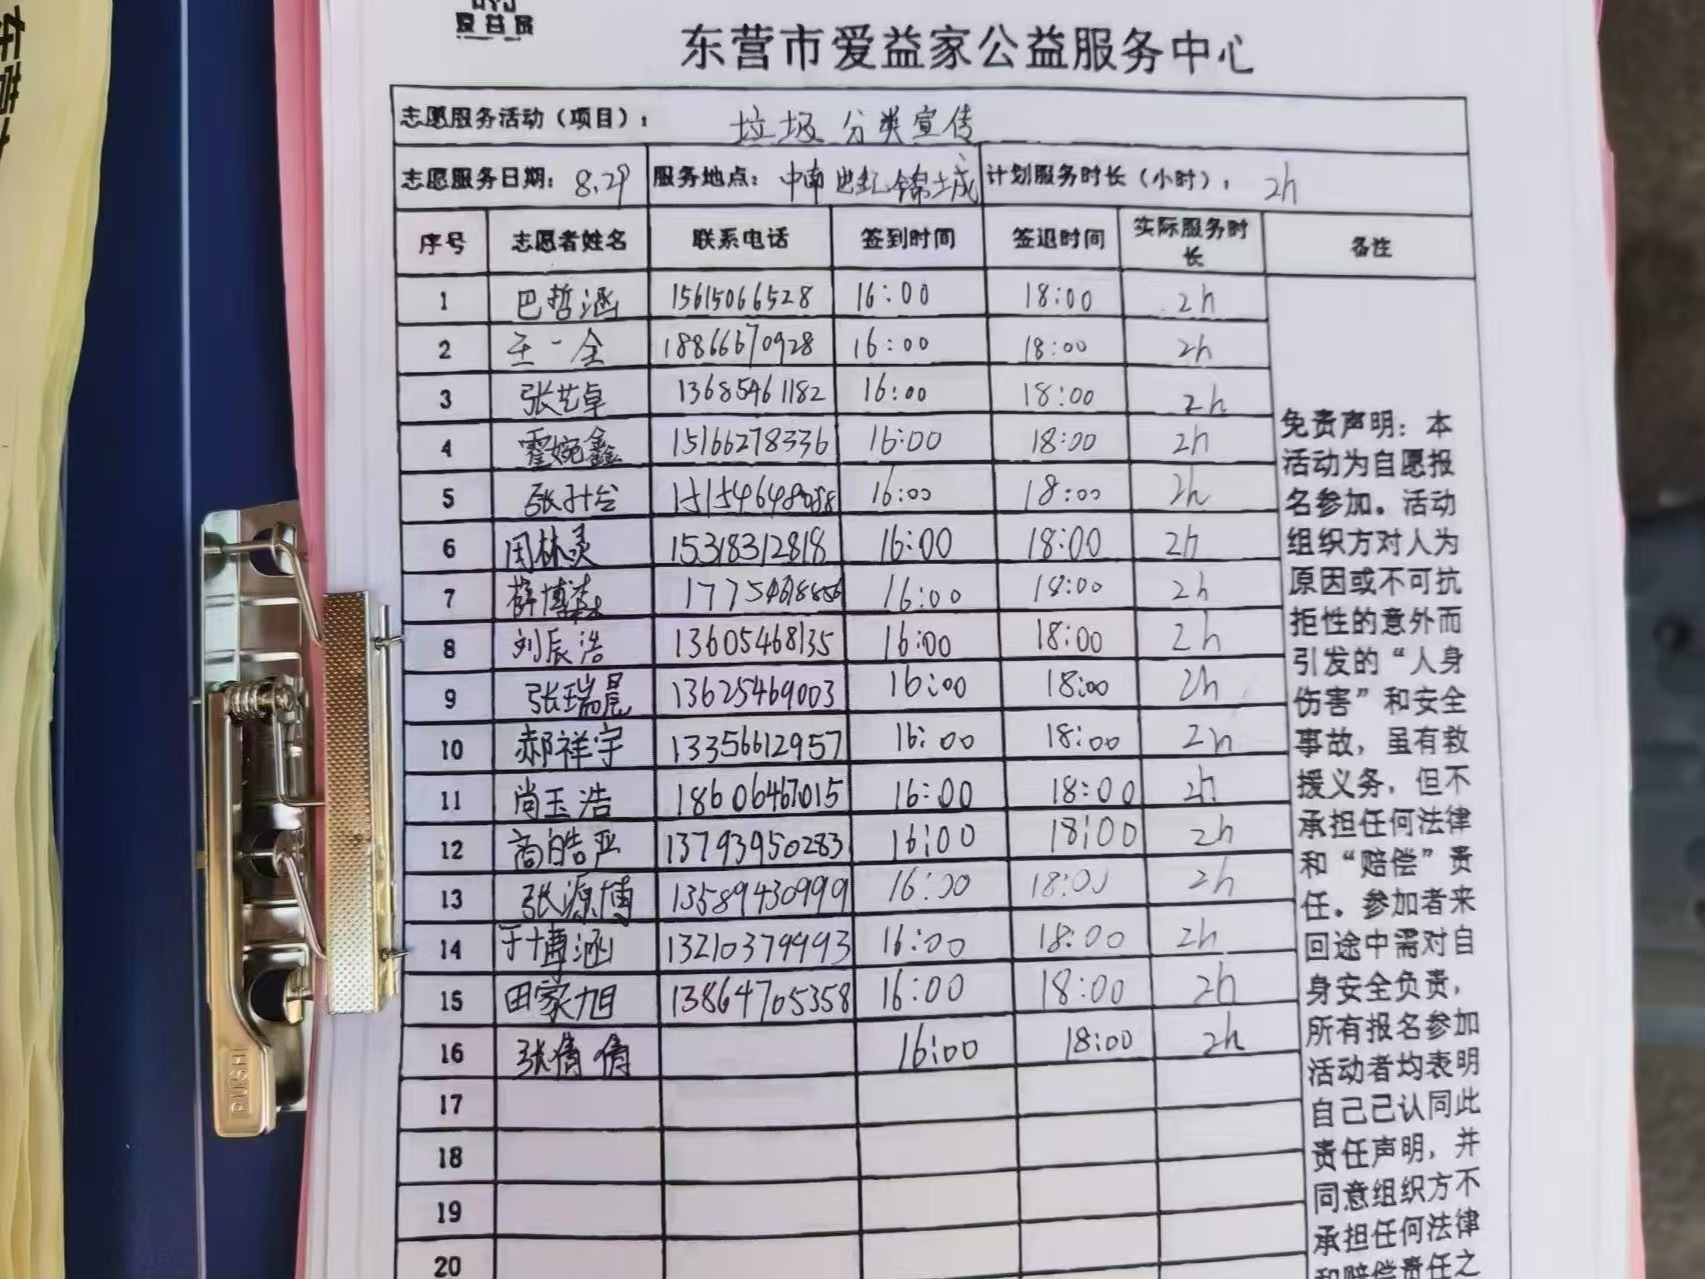 爱益家
东营市爱益家公益服务中心
志愿服务活动（项目）： 垃圾分类宣传
志愿服务日期：8.29 服务地点：中南世纪锦城 计划服务时长（小时）：2h
序号 志愿者姓名 联系电话 签到时间 签退时间 实际服务时长 备注
1 巴哲涵 15615066528 16:00 18:00 2h
2 王一全 18866670928 16:00 18:00 2h
3 张艺卓 13685461182 16:00 18:00 2h
4 霍婉鑫 15166278336 16:00 18:00 2h
5 16:00 18:00 2h
6 15318312818 16:00 18:00 2h
7 薛博森 16:00 18:00 2h
8 刘辰浩 13605468135 16:00 18:00 2h
9 张瑞晨 13625469003 16:00 18:00 2h
10 郝祥宇 13356612957 16:00 18:00 2h
11 尚玉浩 18606467015 16:00 18:00 2h
12 商皓严 13793950283 16:00 18:00 2h
13 张源博 13589430999 16:00 18:00 2h
14 于博涵 13210379993 16:00 18:00 2h
15 田家旭 13864705358 16:00 18:00 2h
16 张倩倩 16:00 18:00 2h
17
18
19
20
免责声明：本
活动为自愿报
名参加。活动
组织方对人为
原因或不可抗
拒性的意外而
引发的“人身
伤害”和安全
事故，虽有救
援义务，但不
承担任何法律
和“赔偿”责
任。参加者来
回途中需对自
身安全负责，
所有报名参加
活动者均表明
自己已认同此
责任声明，并
同意组织方不
承担任何法律
和赔偿责任之
PUSH